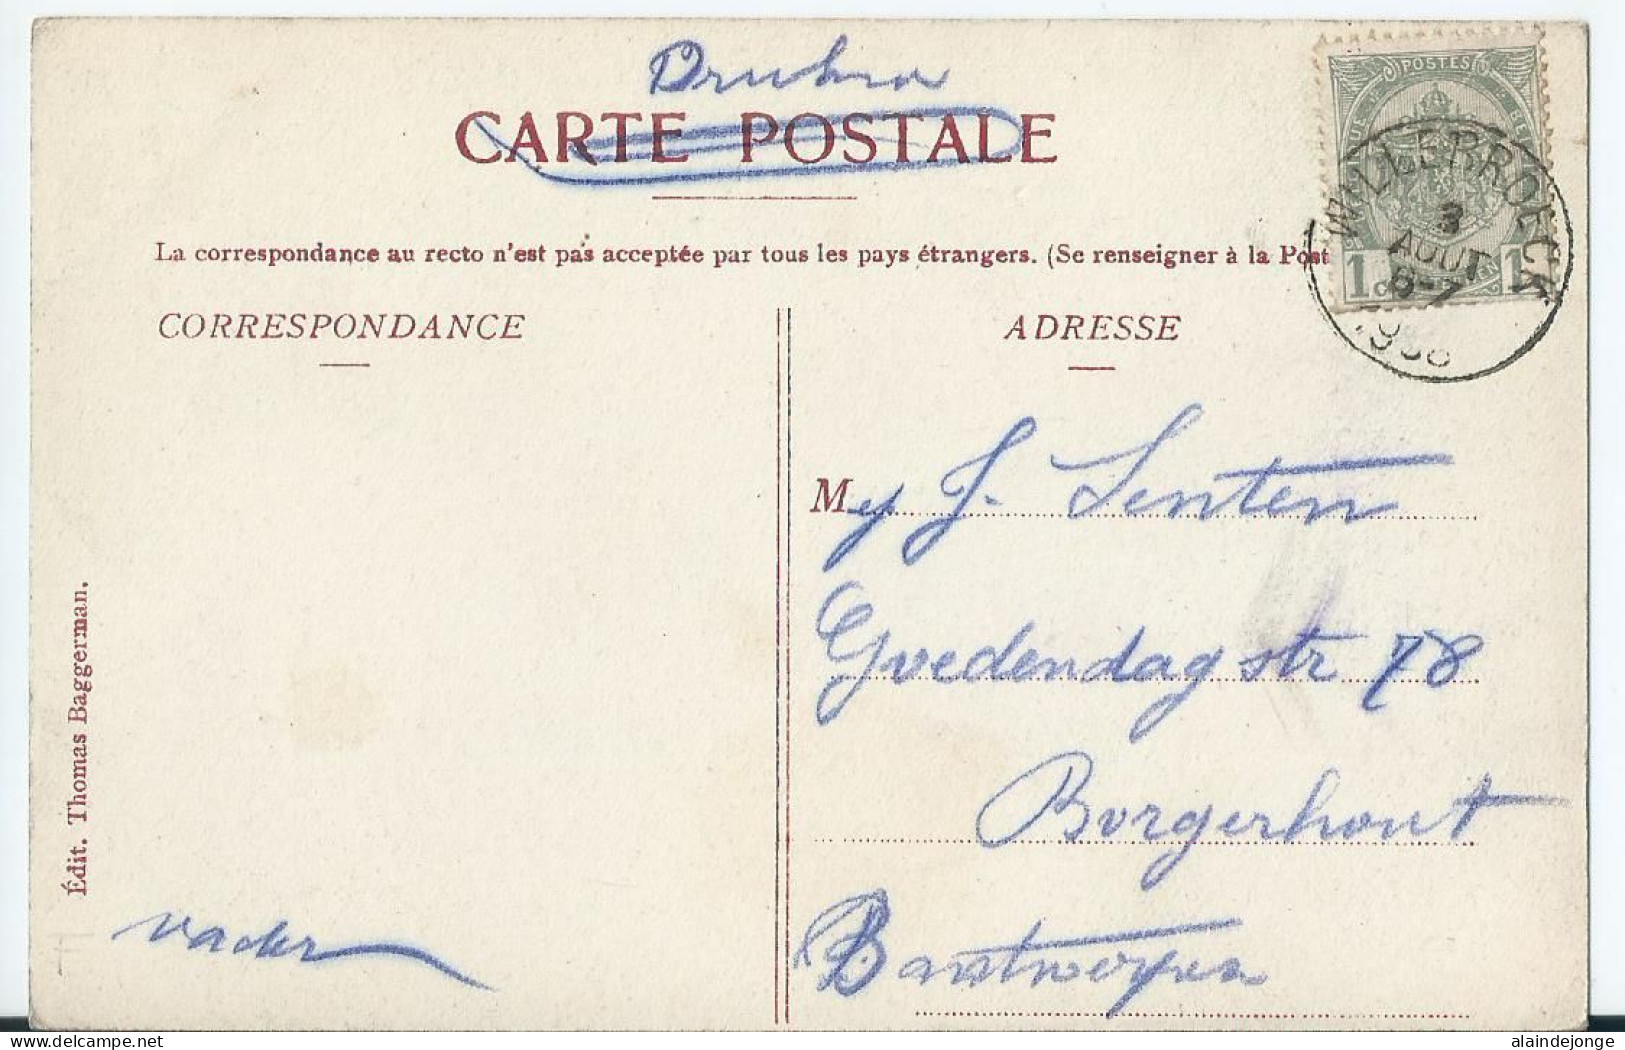 CARTE POSTALE
POSTES
WILLEBROECK
3
AOUT
6-7
1908
1 C EN 1
La correspondance au recto n'est pas acceptée par tous les pays étrangers. (Se renseigner à la Post
CORRESPONDANCE
ADRESSE
Mej J. Senten
Gvedendag str 78
Borgerhout
Antwerpen
vader
Édit. Thomas Baggerman.
alaindejonge